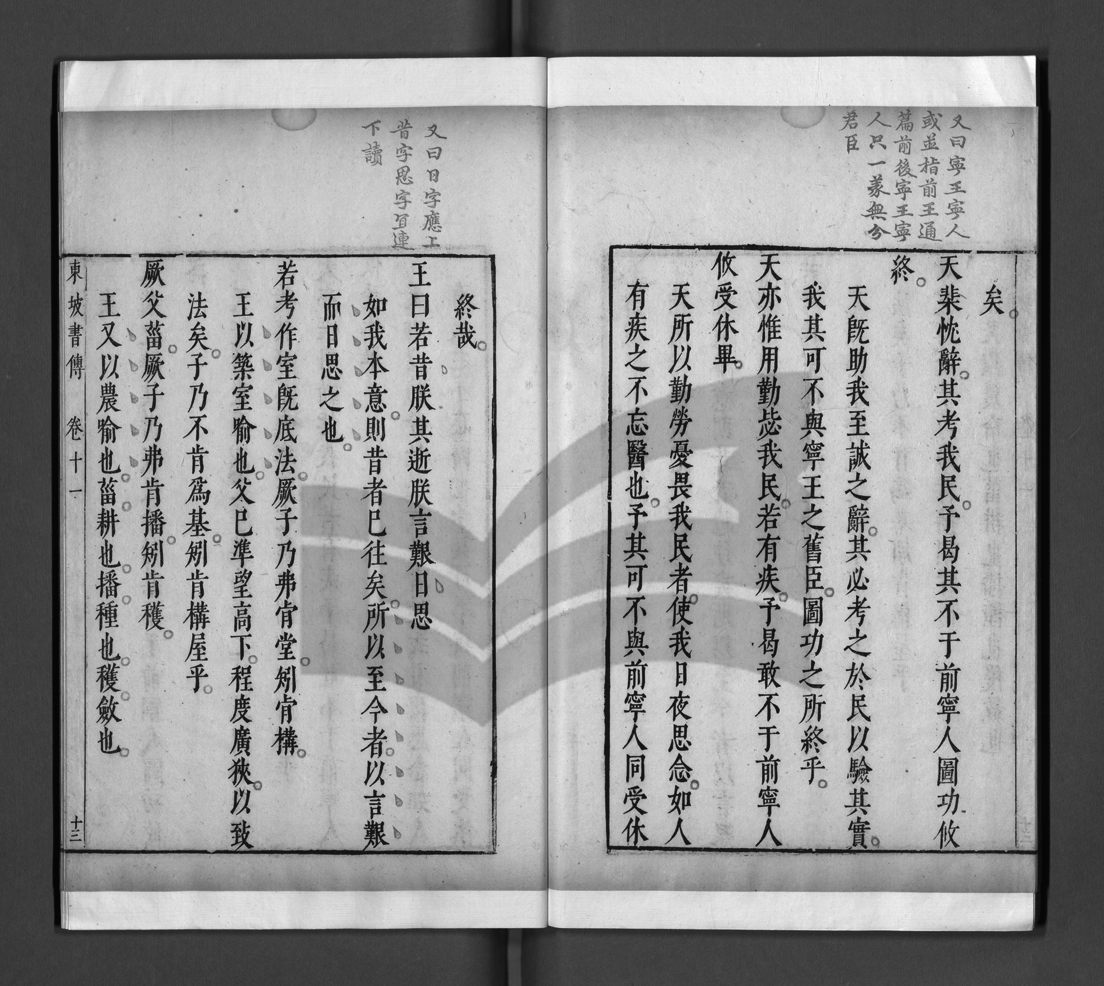 又曰寧王寧人
或並指前王通
篇前後寧王寧
人只一義無分
君臣
矣。
天棐忱辭。其考我民。予曷其不于前寧人圖功攸
終。
天旣助我至誠之辭。其必考之於民以驗其實。
我其可不與寧王之舊臣。圖功之所終乎。
天亦惟用勤毖我民。若有疾。予曷敢不于前寧人
攸受休畢。
天所以勤勞憂畏我民者。使我日夜思念。如人
有疾之不忘醫也。予其可不與前寧人同受休
又曰日字應上
昔字思字宜連
下讀
終哉。
王曰若昔朕其逝朕言艱日思
如我本意。則昔者已往矣。所以至今者。以言艱
而日思之也。
若考作室旣底法。厥子乃弗肯堂。矧肯構。
王以築室喻也。父已準望高下。程度廣狹。以致
法矣。子乃不肯爲基。矧肯構屋乎。
厥父菑。厥子乃弗肯播。矧肯穫。
王又以農喻也。菑耕也。播種也。穫斂也。
東坡書傳 卷十一 十三